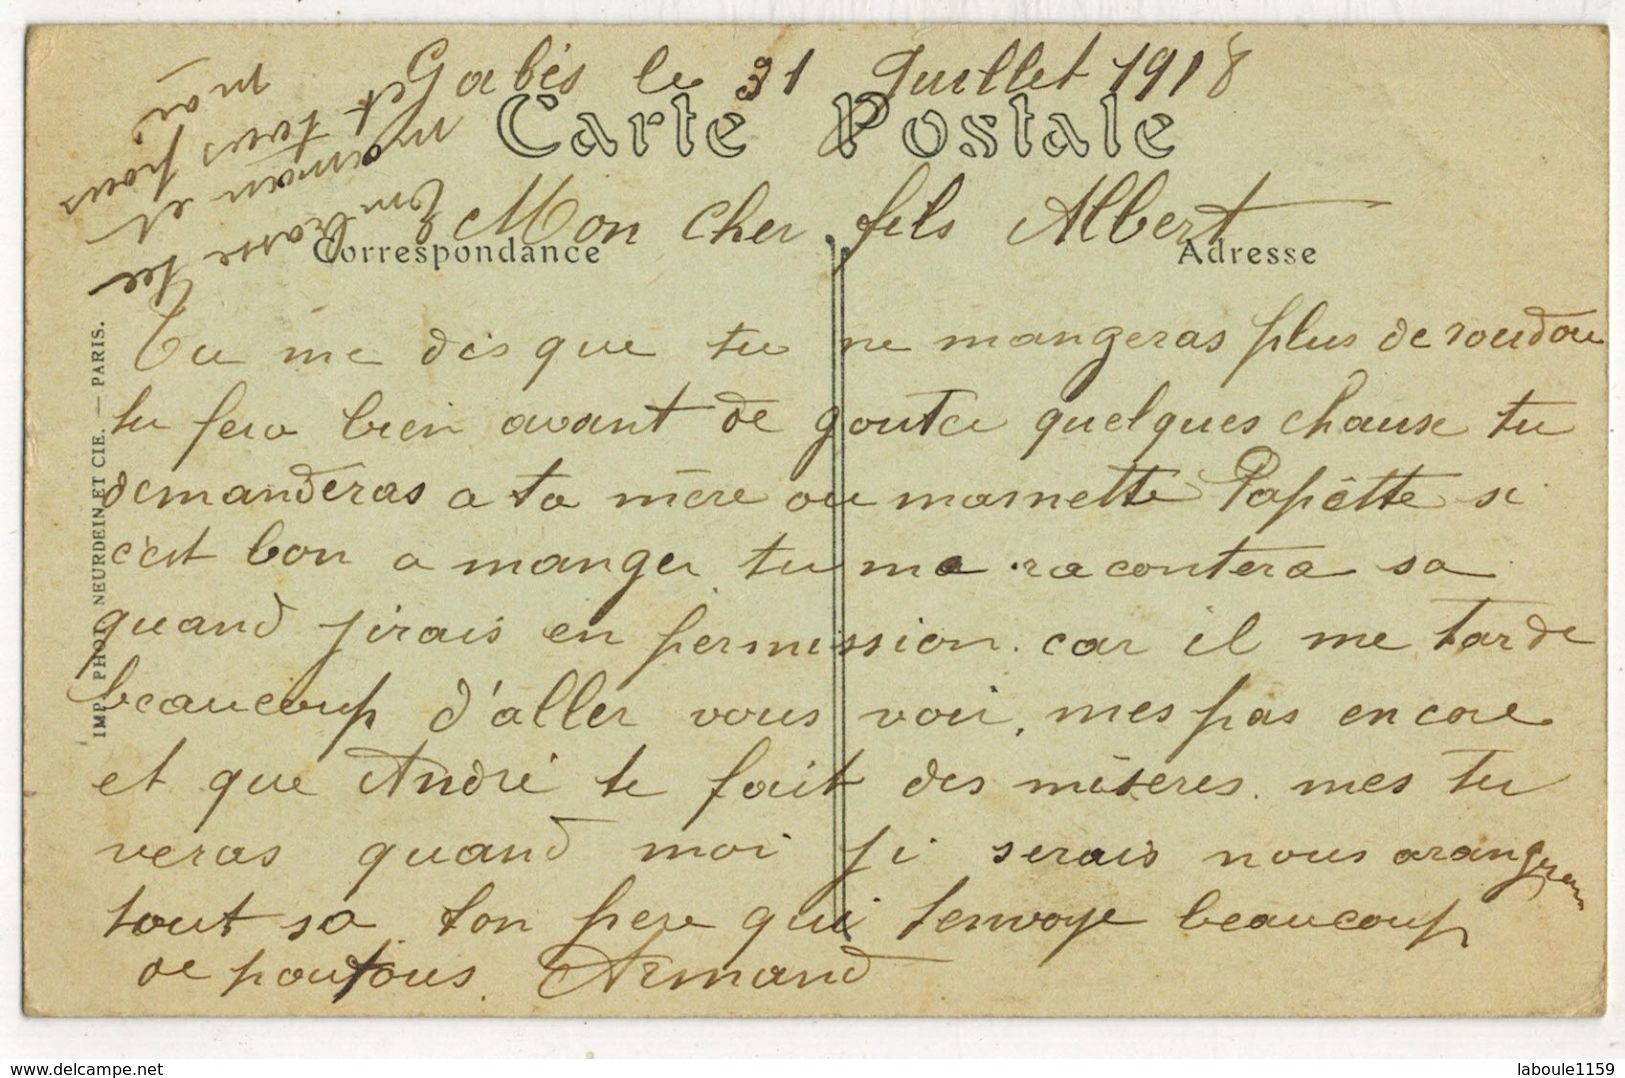 Gabès le 31 Juillet 1918
Carte Postale
Mon cher fils Albert
Correspondance
Adresse
Tu me dis que tu ne mangeras plus de roudou
tu fera bien avant de gouter quelques chause tu
demanderas a ta mère ou mamette Papètte si
c'est bon a manger tu me racontera sa
quand jirais en permission. car il me tarde
beaucoup d'aller vous voir, mes pas encore
et que André te fait des misères. mes tu
veras quand moi ji serais nous arangeron
tout sa ton pere qui tenvoye beaucoup
de poutous. Armand
Embrasse tee
maman et
et tous pour
moi
IMP. PHOT. NEURDEIN ET CIE. — PARIS.
www.delcampe.net
laboule1159